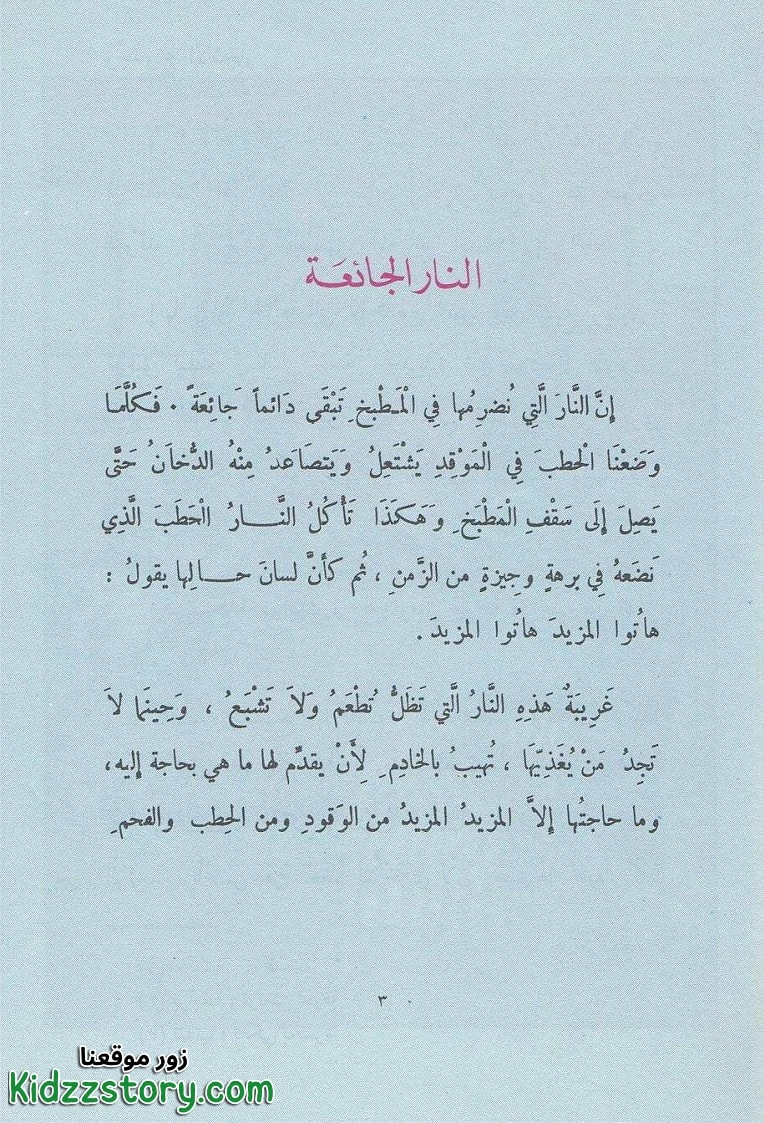 النار الجائعَة
إِنَّ النَّارَ الَّتِي نُضرِمُها فِي الْمَطْبخِ تَبْقَى دَائماً جَائِعَةً . فَكُلَّمَا
وَضَعْنَا الْحطبَ فِي الْمَوْقِدِ يَشْتَعِلُ وَيَتصَاعَدُ مِنْهُ الدُّخاَنُ حَتَّى
يَصِلَ إِلَى سَقْفِ الْمَطْبَخِ وَهَكَذَا تَأْكُلُ النَّـــارُ الْحَطَبَ الَّذِي
نَضَعَهُ فِي برهةٍ وجِيزةٍ من الزَّمنِ ، ثُم كأَنَّ لسانَ حـــالِها يقولُ :
هاتُوا المزيدَ هاتُوا المزيدَ .
غَرِيبَةٌ هَذِهِ النَّارُ الَّتي تَظَلُّ تُطْعَمُ وَلاَ تَشْبَعُ ، وَحِينَما لاَ
تَجِدُ مَنْ يُغَذِّيّهَا ، تُهيبُ بالخادِمِ لِأَنْ يقدِّم لها ما هي بحاجة إليه،
وما حاجتُها إلاَّ المزيدُ المزيدُ من الوَقودِ ومن الحِطب والفحمِ
٣
زور موقعنا
Kidzzstory.com